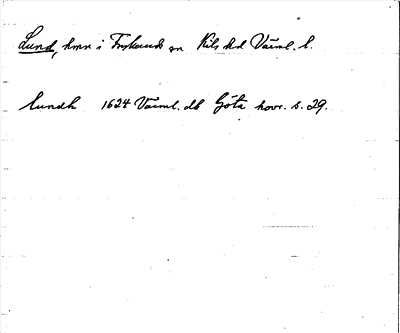 Lund, hmn i Frykerud sn Kils hd Värml. l.
Lundh 1624 Värml. db Göta hovr. s. 29.